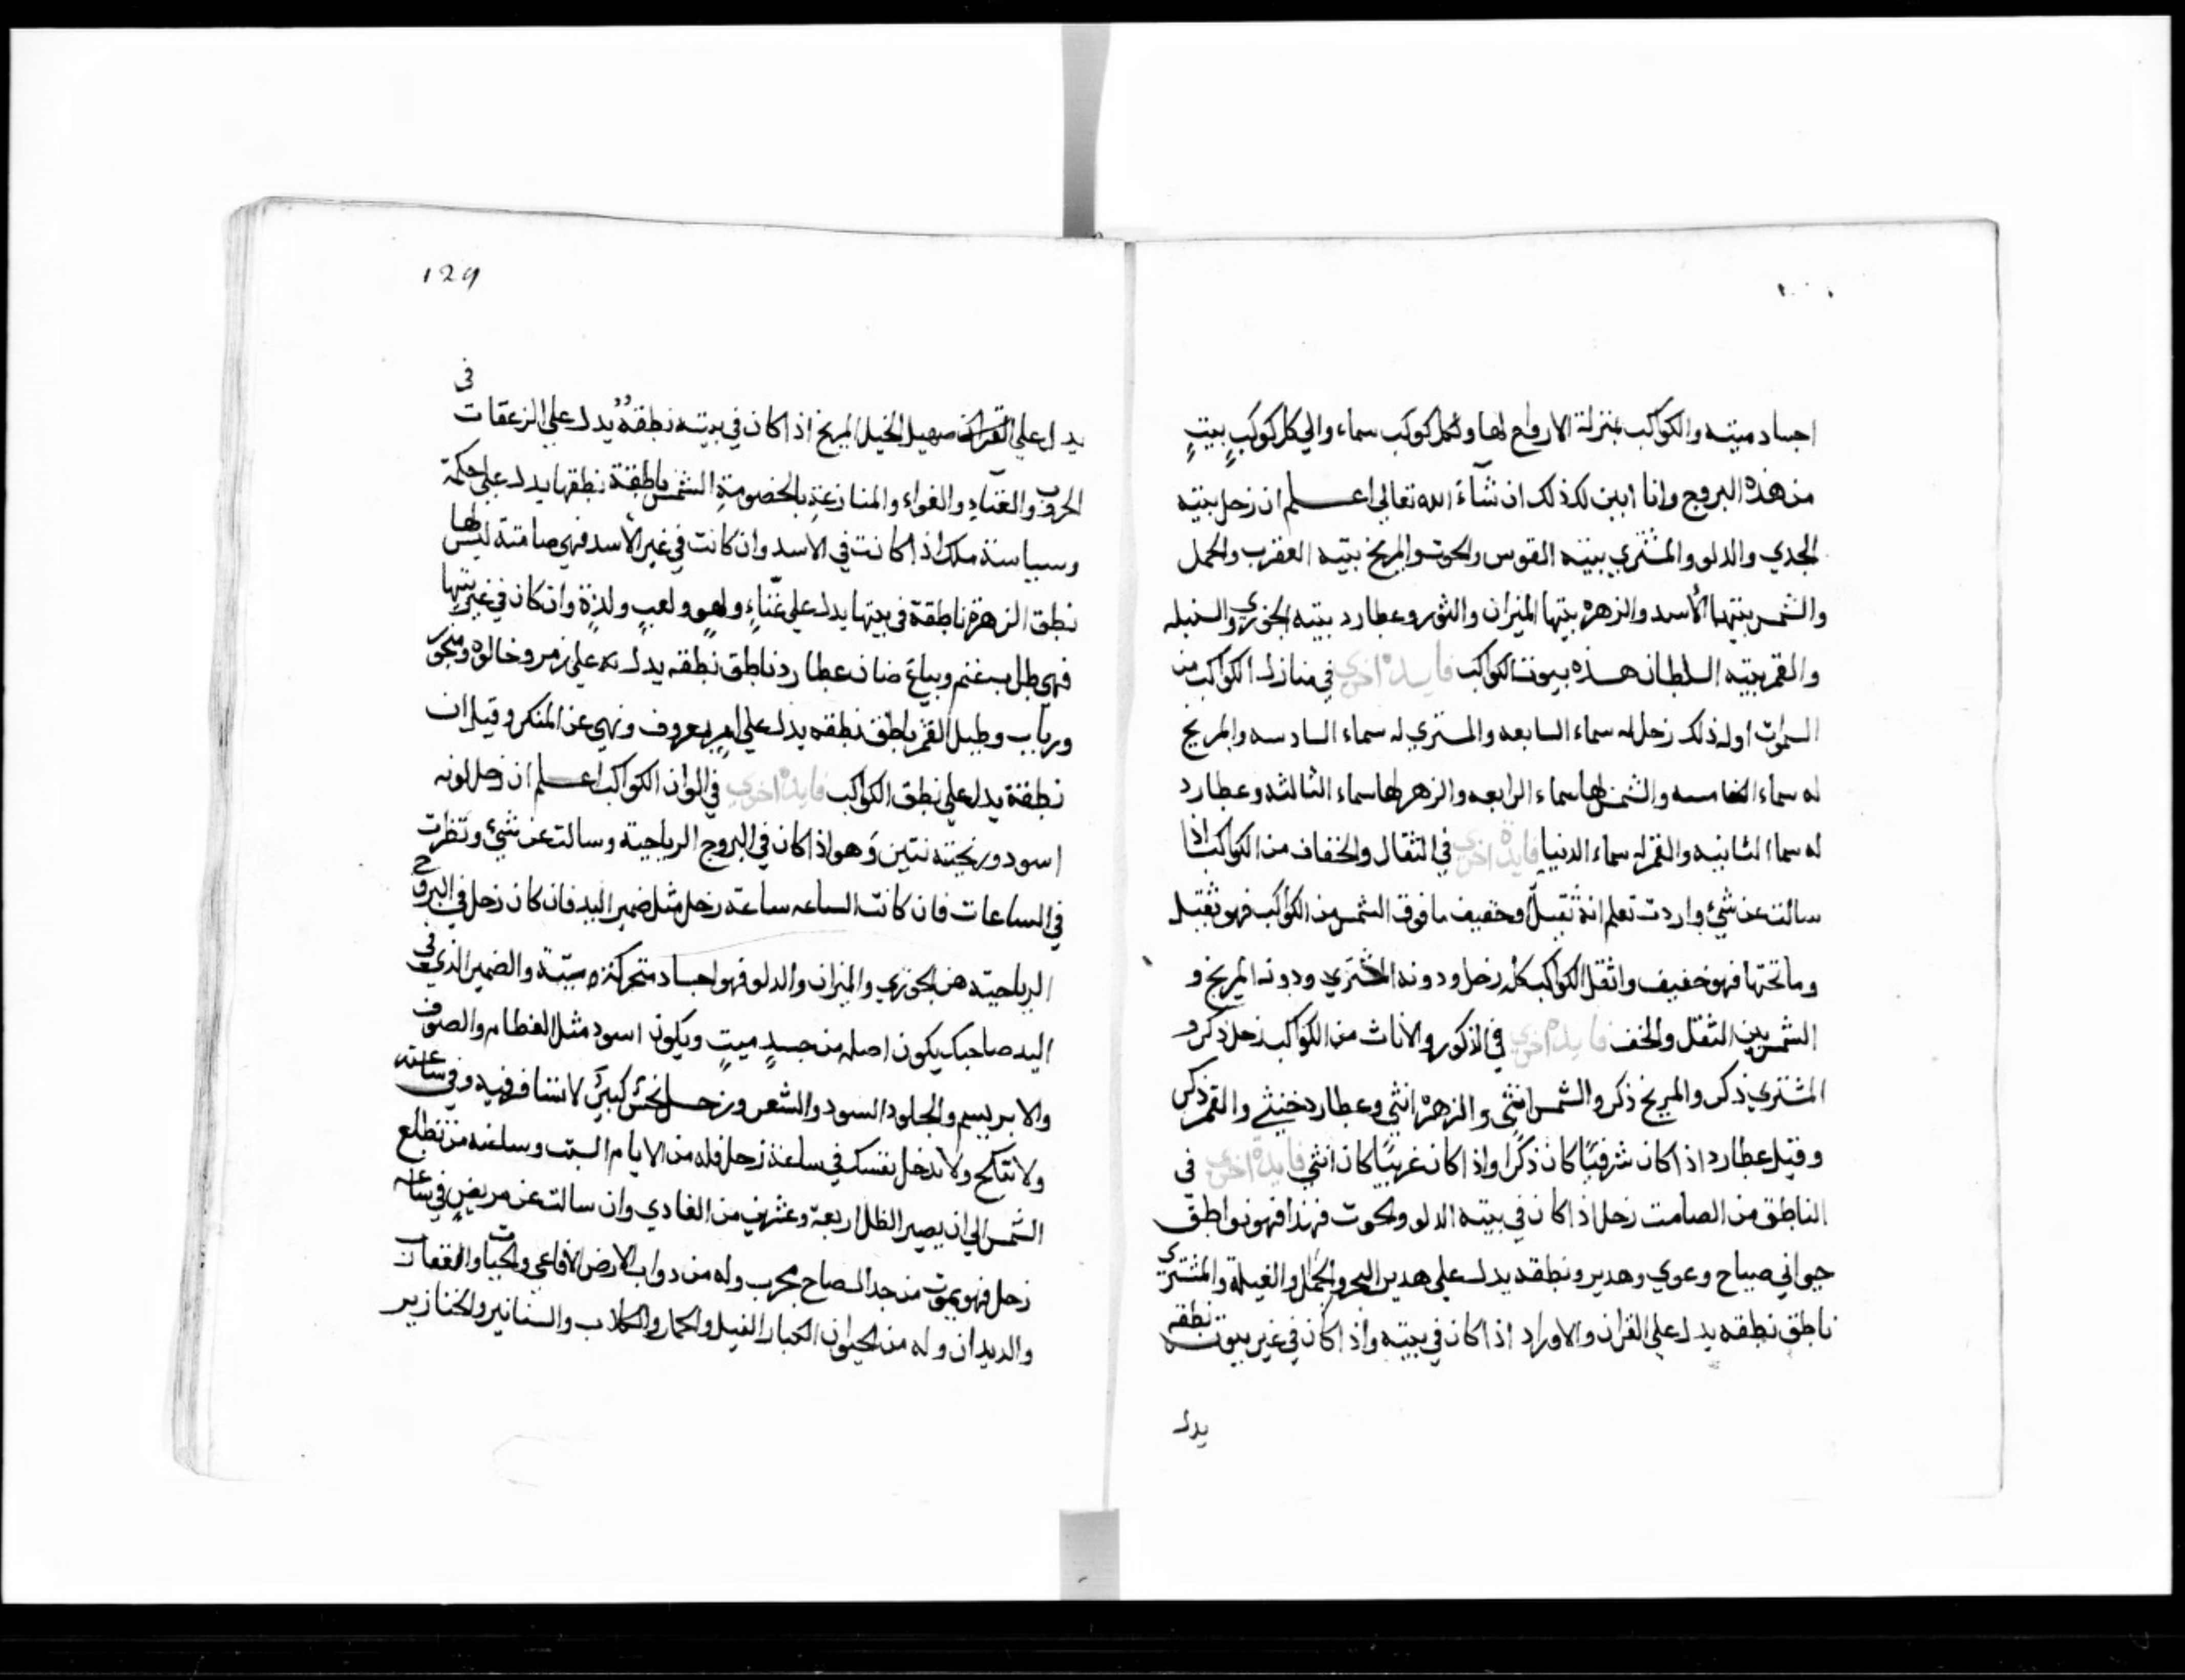 اجساد ميته والكواكب بمنزلة الارواح لها ولكل كوكب سماء والي كل كوكبٍ بيتٍ
من هذه البروج وانا ابين لك ذلك ان شآء الله تعالي اعلم ان زحل بيته
الجدي والدلو والمشتري بيته القوس والحوت والمريخ بيته العقرب والحمل
والشمس بيتها الأسد والزهره بيتها الميزان والثور وعطارد بيته الجوزي والسنبله
والقمر بيته السلطان هذه بيوت الكواكب فايدة اخري في منازل الكواكب من
السموات اول ذلك زحل له سماء السابعه والمشتري له سماء السادسه والمريخ
له سماء الخامسه والشمس لها سماء الرابعه والزهره لها سماء الثالثه وعطارد
له سما الثانيه والقمر له سماء الدنيا فايدة اخري في الثقال والخفاف من الكواكب اذا
سالت عن شيء واردت تعلم انه ثقيل او خفيف ما فوق الشمس من الكواكب فهو ثقيل
وما تحتها فهو خفيف واثقل الكواكب كله زحل ودونه المشتري ودونه المريخ و
الشمس بين الثقل والخف فايدة اخري في الذكور والاناث من الكواكب زحل ذكر و
المشتري ذكر والمريخ ذكر والشمس انثي والزهره انثي وعطارد خنثي والقمر ذكر
وقيل عطارد اذا كان شرقيًا كان ذكرا واذا كان غربيًا كان انثي فايدة اخري في
الناطق من الصامت زحل اذا كان في بيته الدلو والحوت فهذا فهو نواطق
حيواني صياح وعوي وهدير ونطقه يدل علي هدير البحر والجمل والفيلة والمشتري
ناطق نطقه يدل علي القران والاوراد اذا كان في بيته واذا كان في غير بيوته نطقه
يدل
129
يدل علي صهيل الخيل المريخ اذا كان في بيته نطقه يدل علي الزعقات في
الحروب والعناد والغواء والمنازعة بالخصومة الشمس ناطقة نطقها يدل علي حكمة
وسياسة ملك اذا كانت في الاسد وان كانت في غير الأسد فهي صامتة ليس لها
نطق الزهرة ناطقة في بيتها يدل علي غناءٍ ولهوٍ ولعبٍ ولذةٍ وان كان في غير بيتها
فهي طلب غنم وبياع ضان عطارد ناطق نطقه يدل علي زمر و
ورباب وطبل القمر ناطق نطقه يدل علي امرٍ بمعروف ونهي عن المنكر وقيل ان
نطقة يدل علي نطق الكواكب فايدة اخري في الوان الكواكب اعلم ان زحل لونه
اسود وريحته نتين وهو اذا كان في البروج الرياحية وسالت عن شيء ونظرت
في الساعات فان كانت الساعه ساعة زحل مثل ضمير اليد فان كان زحل في البروج
الرياحيته هن الجوزي والميزان والدلو فهو اجساد متحركة ميتة والضمير الذي في
اليد صاحبك يكون اصله من جسدٍ ميتٍ ويكون اسود مثل العظام والصوف
والابريسم والجلود السود والشعر وزحل نحسٌ كبيرٌ لا تسافر فيه وفي ساعته
ولا تنكح ولا تدخل نفسك في ساعة زحل فله من الايام السبت وساعته من تطلع
الشمس الي ان يصير الظل اربعة وعشرين من الغادي وان سالت عن مريضٍ في ساعة
زحل فهو يموت من جد الصاح مجرب وله من دواب الارض الافاعي والحيات والعقارب
والديدان وله من الحيوان الكبار الفيل والحمار والكلاب والسنانير والخنازير